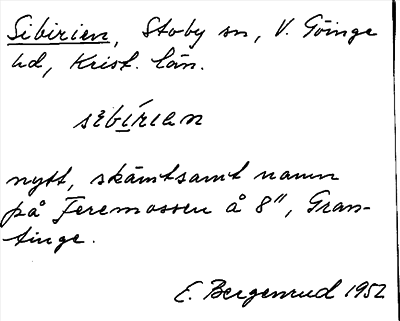 Sibirien, Stoby sn, V. Göinge
hd, Krist. län.
sɛbírian
nytt, skämtsamt namn
på Feremossen å 8", Gran-
tinge.
E. Bergenrud 1952